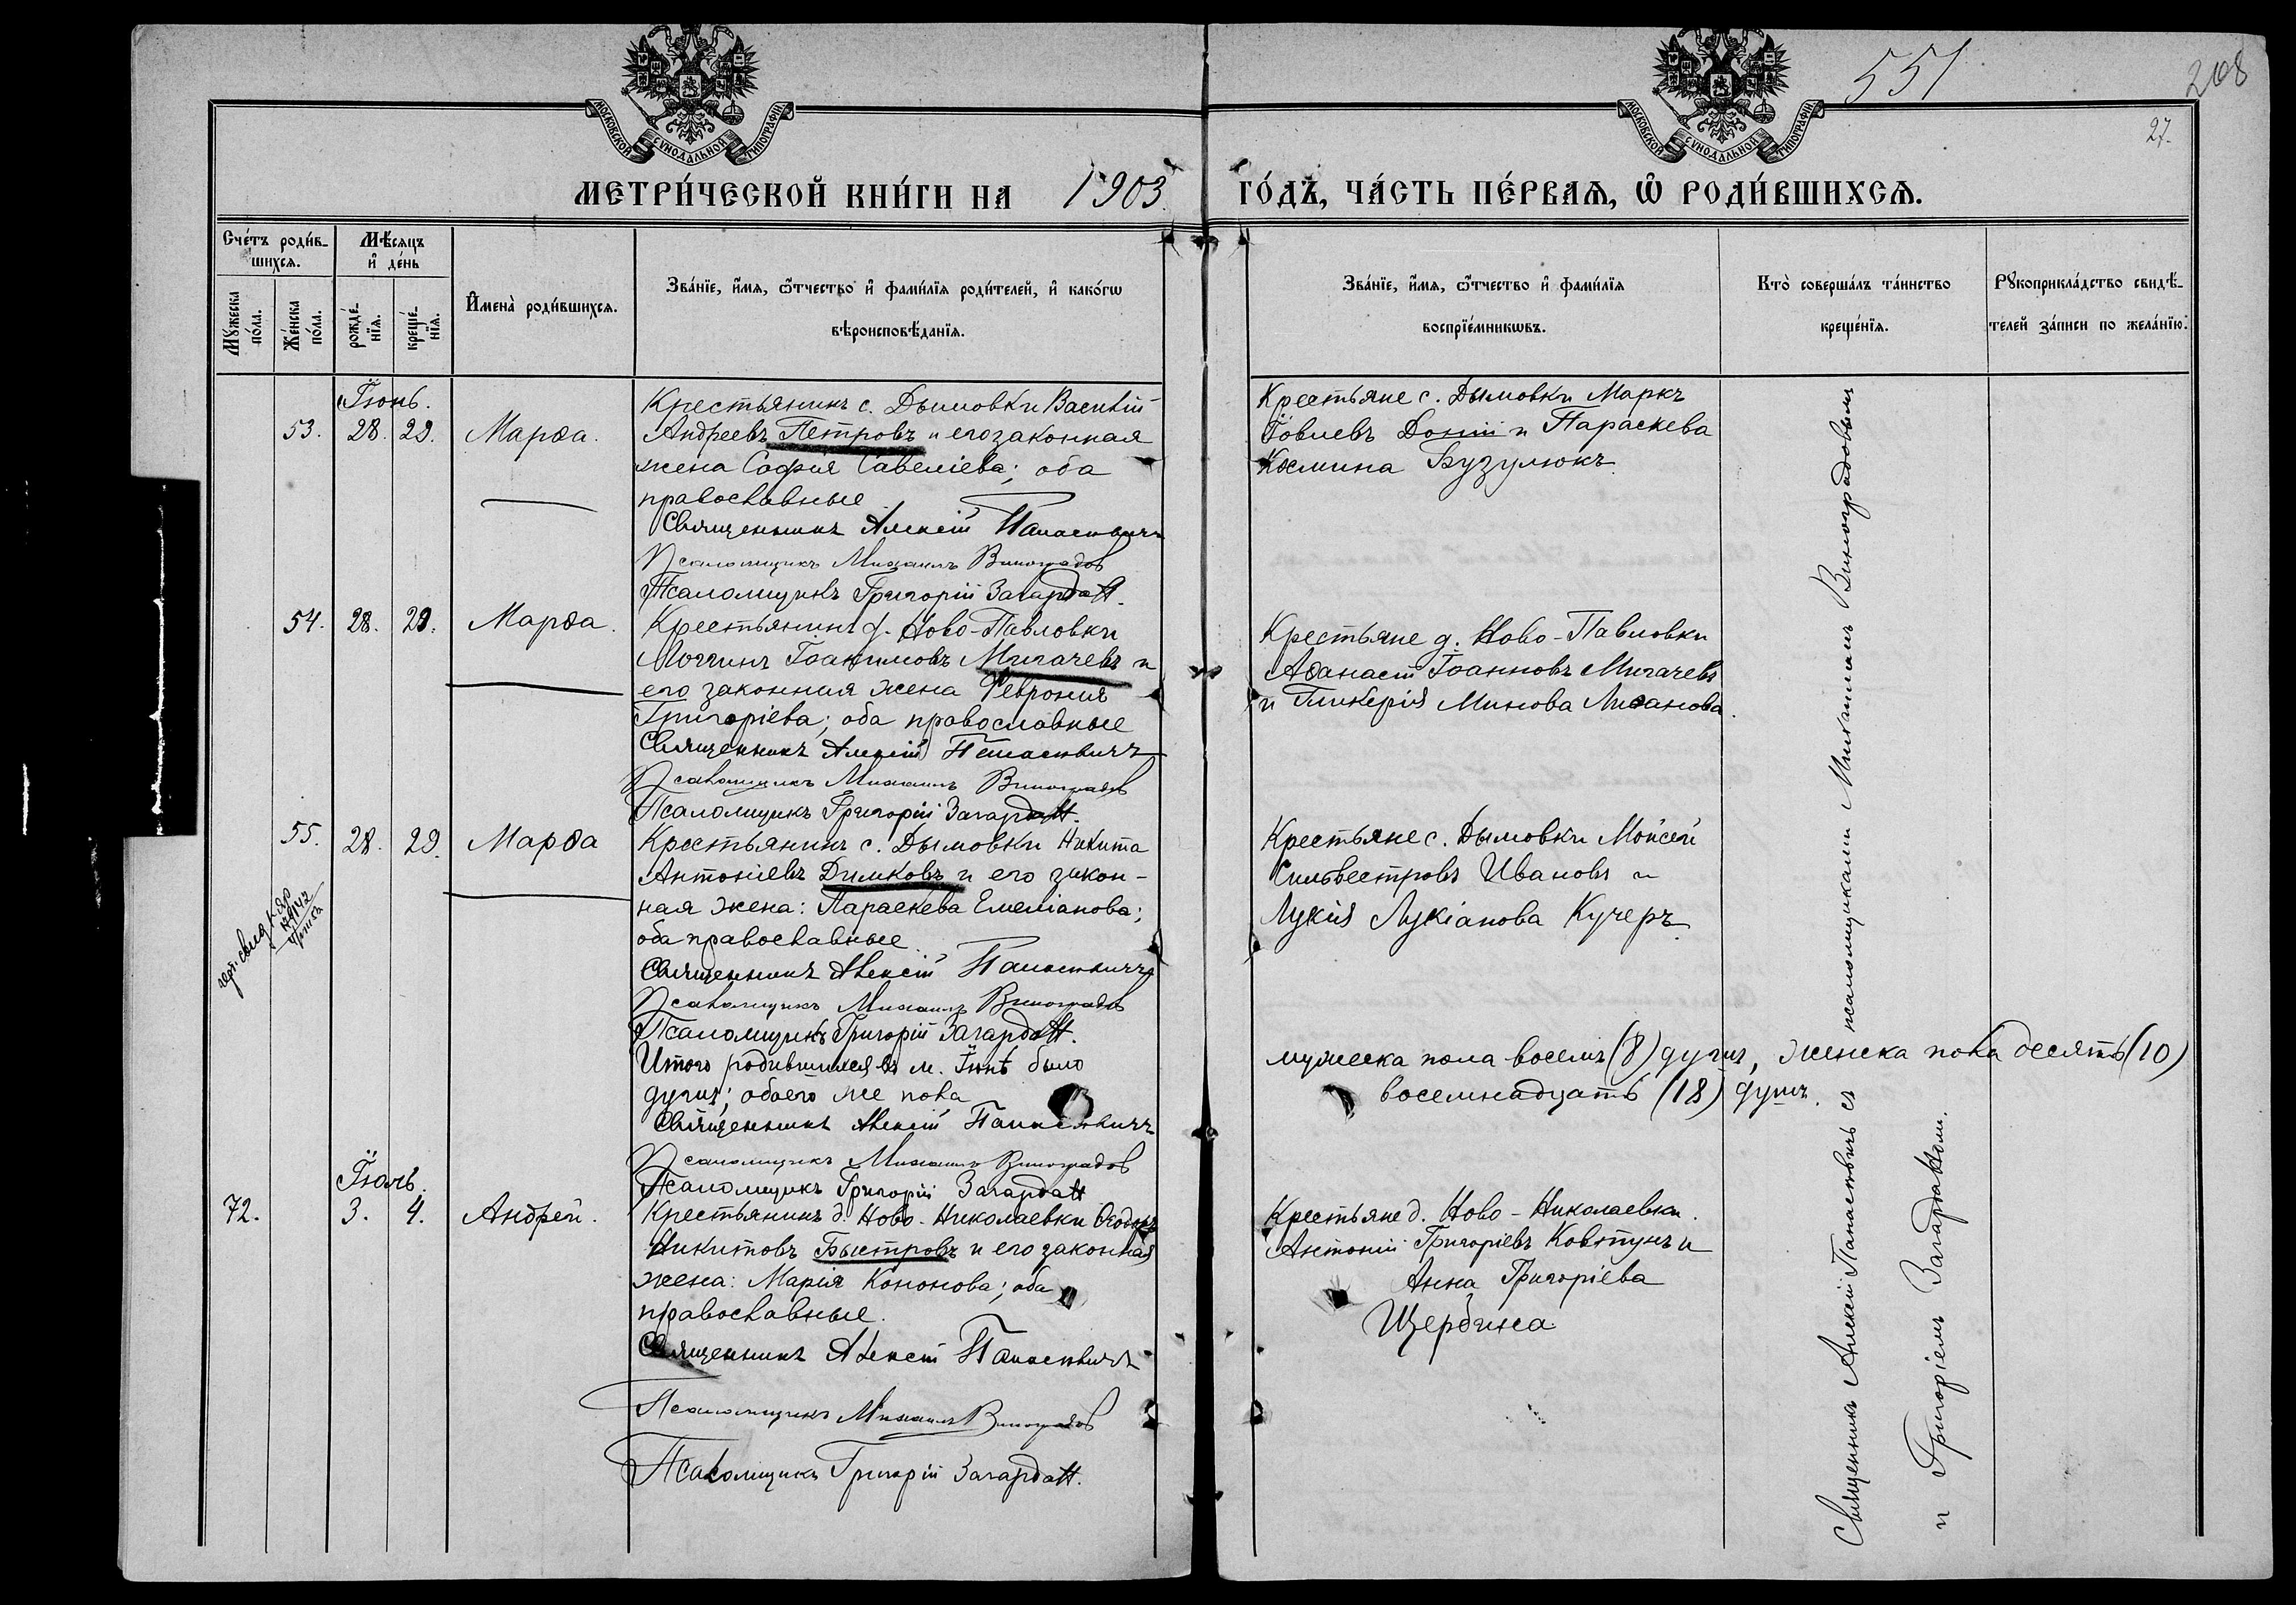 551
208
27.
МОСКОВСКОЙ СѴНОДАЛЬНОЙ ТИПОГРАФІИ
МОСКОВСКОЙ СѴНОДАЛЬНОЙ ТИПОГРАФІИ
МЕТРИ́ЧЕСКОЙ КНИ́ГИ НА 1903 ГО́ДЪ, ЧА́СТЬ ПЕ́РВАѦ, Ѡ҆ РОДИ́ВШИХСѦ.
Сче́тъ роди́в-
шихсѧ.
Мꙋ́жеска по́ла.
Же́нска по́ла.
Мѣ́сѧцъ
и҆ де́нь
рожде́-
нїѧ.
креще́-
нїѧ.
И҆мена̀ роди́вшихсѧ.
Зва́нїе, и҆́мѧ, ѻ҆́тчество и҆ фами́лїѧ роди́телей, и҆ како́гѡ
вѣроисповѣ́данїѧ.
Зва́нїе, и҆́мѧ, ѻ҆́тчество и҆ фами́лїѧ
воспрїе́мникѡвъ.
Кто̀ соверша́лъ та́инство
креще́нїѧ.
Рꙋкоприкла́дство свидѣ́-
телей за́писи по жела́нїю.
Іюнь.
53. 28. 29. Марѳа.
Крестьянинъ с. Дымовки Василій
Андреевъ Петровъ и его законная
жена Софія Савеліева; оба
православные
Священникъ Алексій Панасевичъ
Псаломщикъ Михаилъ Виноградов
Псаломщикъ Григорій Загардан.
Крестьяне с. Дымовки Маркъ
Іовлевъ Доній и Параскева
Космина Бузулюкъ.
54. 28. 29. Марѳа.
Крестьянинъ д. Ново-Павловки
Логгинъ Іоакимовъ Мигачевъ и
его законная жена Феврония
Григоріева; оба православные
Священникъ Алексій Панасевичъ
Псаломщикъ Михаилъ Виноградов
Псаломщикъ Григорій Загардан.
Крестьяне д. Ново-Павловки
Аѳанасій Іоанновъ Мигачевъ
и Гликерія Минова Лиханова.
55. 28. 29. Марѳа
Крестьянинъ с. Дымовки Никита
Антоніевъ Димковъ и его закон-
ная жена: Параскева Емеліанова;
оба православные.
Священникъ Алексій Панасевичъ
Псаломщикъ Михаилъ Виноградов
Псаломщикъ Григорій Загардан.
Крестьяне с. Дымовки Моисей
Сильвестровъ Ивановъ и
Лукія Лукіанова Кучеръ.
Итого родившихся въ м. Іюнѣ было мужеска пола восемь (8) душъ, женска пола десять (10)
душъ; обоего же пола восемнадцать (18) душъ.
Священникъ Алексій Панасевичъ
Псаломщикъ Михаилъ Виноградов
Псаломщикъ Григорій Загардан
Іюль.
72. 3. 4. Андрей.
Крестьянинъ д. Ново-Николаевки Ѳеодоръ
Никитовъ Быстровъ и его законная
жена: Марія Кононова; оба
православные.
Священникъ Алексій Панасевичъ
Псаломщикъ Михаилъ Виноградов
Псаломщикъ Григорій Загардан.
Крестьяне д. Ново-Николаевки.
Антоній Григоріевъ Ковтунъ и
Анна Григоріева
Щербина
Священникъ Алексій Панасевичъ съ псаломщиками Михаиломъ Виноградовымъ
и Григоріемъ Загарданом.